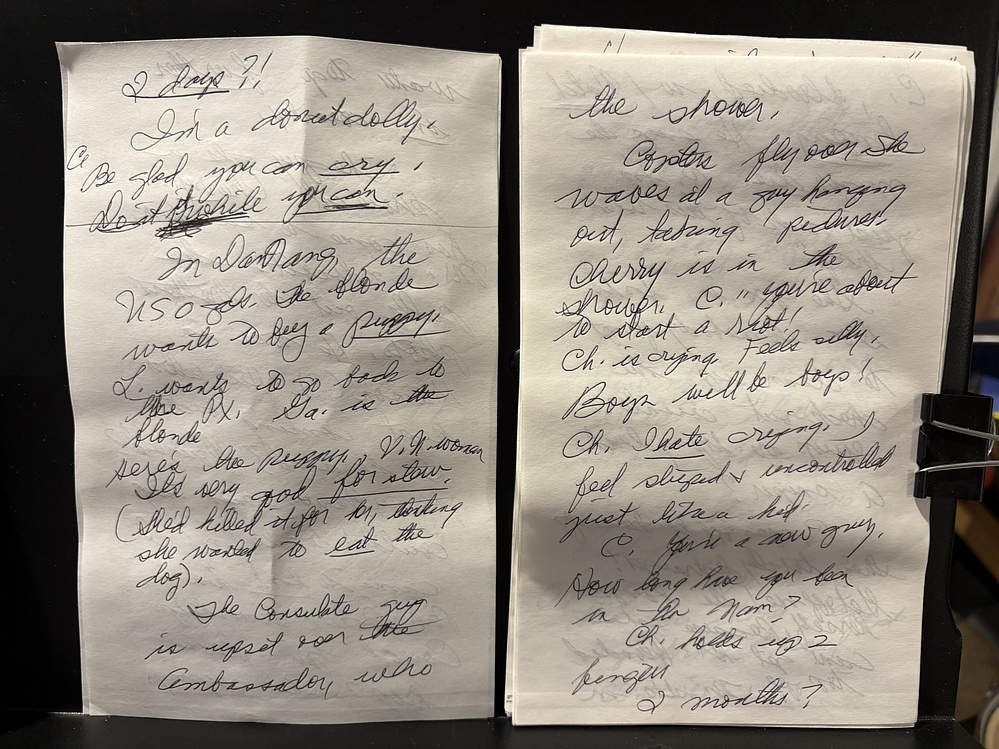 2 days?!
I'm a donut dolly.
C. Be glad you can cry.
Do it while you can.
In DaNang, the
USO gals. The blonde
wants to buy a puppy.
L. wants to go back to
the PX. Ga. is the
blonde
Here's the puppy, V.N. woman
It's very good for stew.
(She'd killed it for her, thinking
she wanted to eat the
dog).
The Consulate guy
is upset over the
Ambassador, who
the shower.
Copters fly over. She
waves at a guy hanging
out, taking pictures.
Cherry is in the
shower. C. "you're about
to start a riot!
Ch. is crying. Feels silly.
Boys will be boys!
Ch. I hate crying. I
feel stupid & uncontrolled
just like a kid.
C. You're a new guy.
How long have you been
in the Nam?
Ch. holds up 2
fingers
2 months?